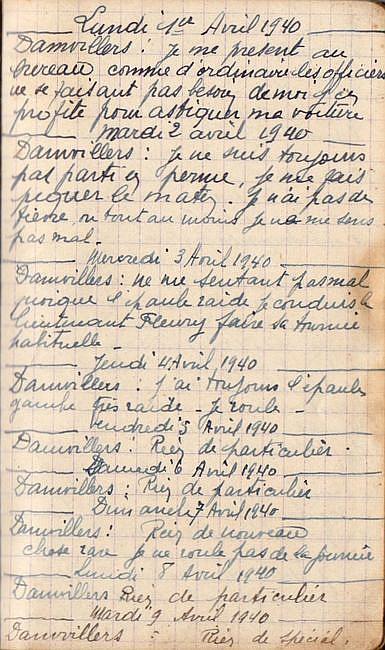 Lundi 1er Avril 1940
Damvillers : je me present au
bureau comme d'ordinaire les officiers
ne se faisant pas besoin de moi j'en
profite pour astiquer ma voiture
Mardi 2 avril 1940
Damvillers : Je ne suis toujours
pas parti en perme, je me fais
piquer le matin. Je n'ai pas de
fièvre, ou tout au moins je ne me sens
pas mal.
Mercredi 3 Avril 1940
Damvillers : ne me sentant pas mal
quoique l'épaule raide je conduis le
lieutenant Fleury faire sa tournée
habituelle
Jeudi 4 Avril 1940
Damvillers : j'ai toujours l'épaule
gauche très raide - je roule -
Vendredi 5 Avril 1940
Damvillers : Rien de particulier.
Samedi 6 Avril 1940
Damvillers : Rien de particulier
Dimanche 7 Avril 1940
Damvillers : Rien de nouveau
chose rare je ne roule pas de la journée
Lundi 8 Avril 1940
Damvillers Rien de particulier
Mardi 9 Avril 1940
Damvillers : Rien de spécial.